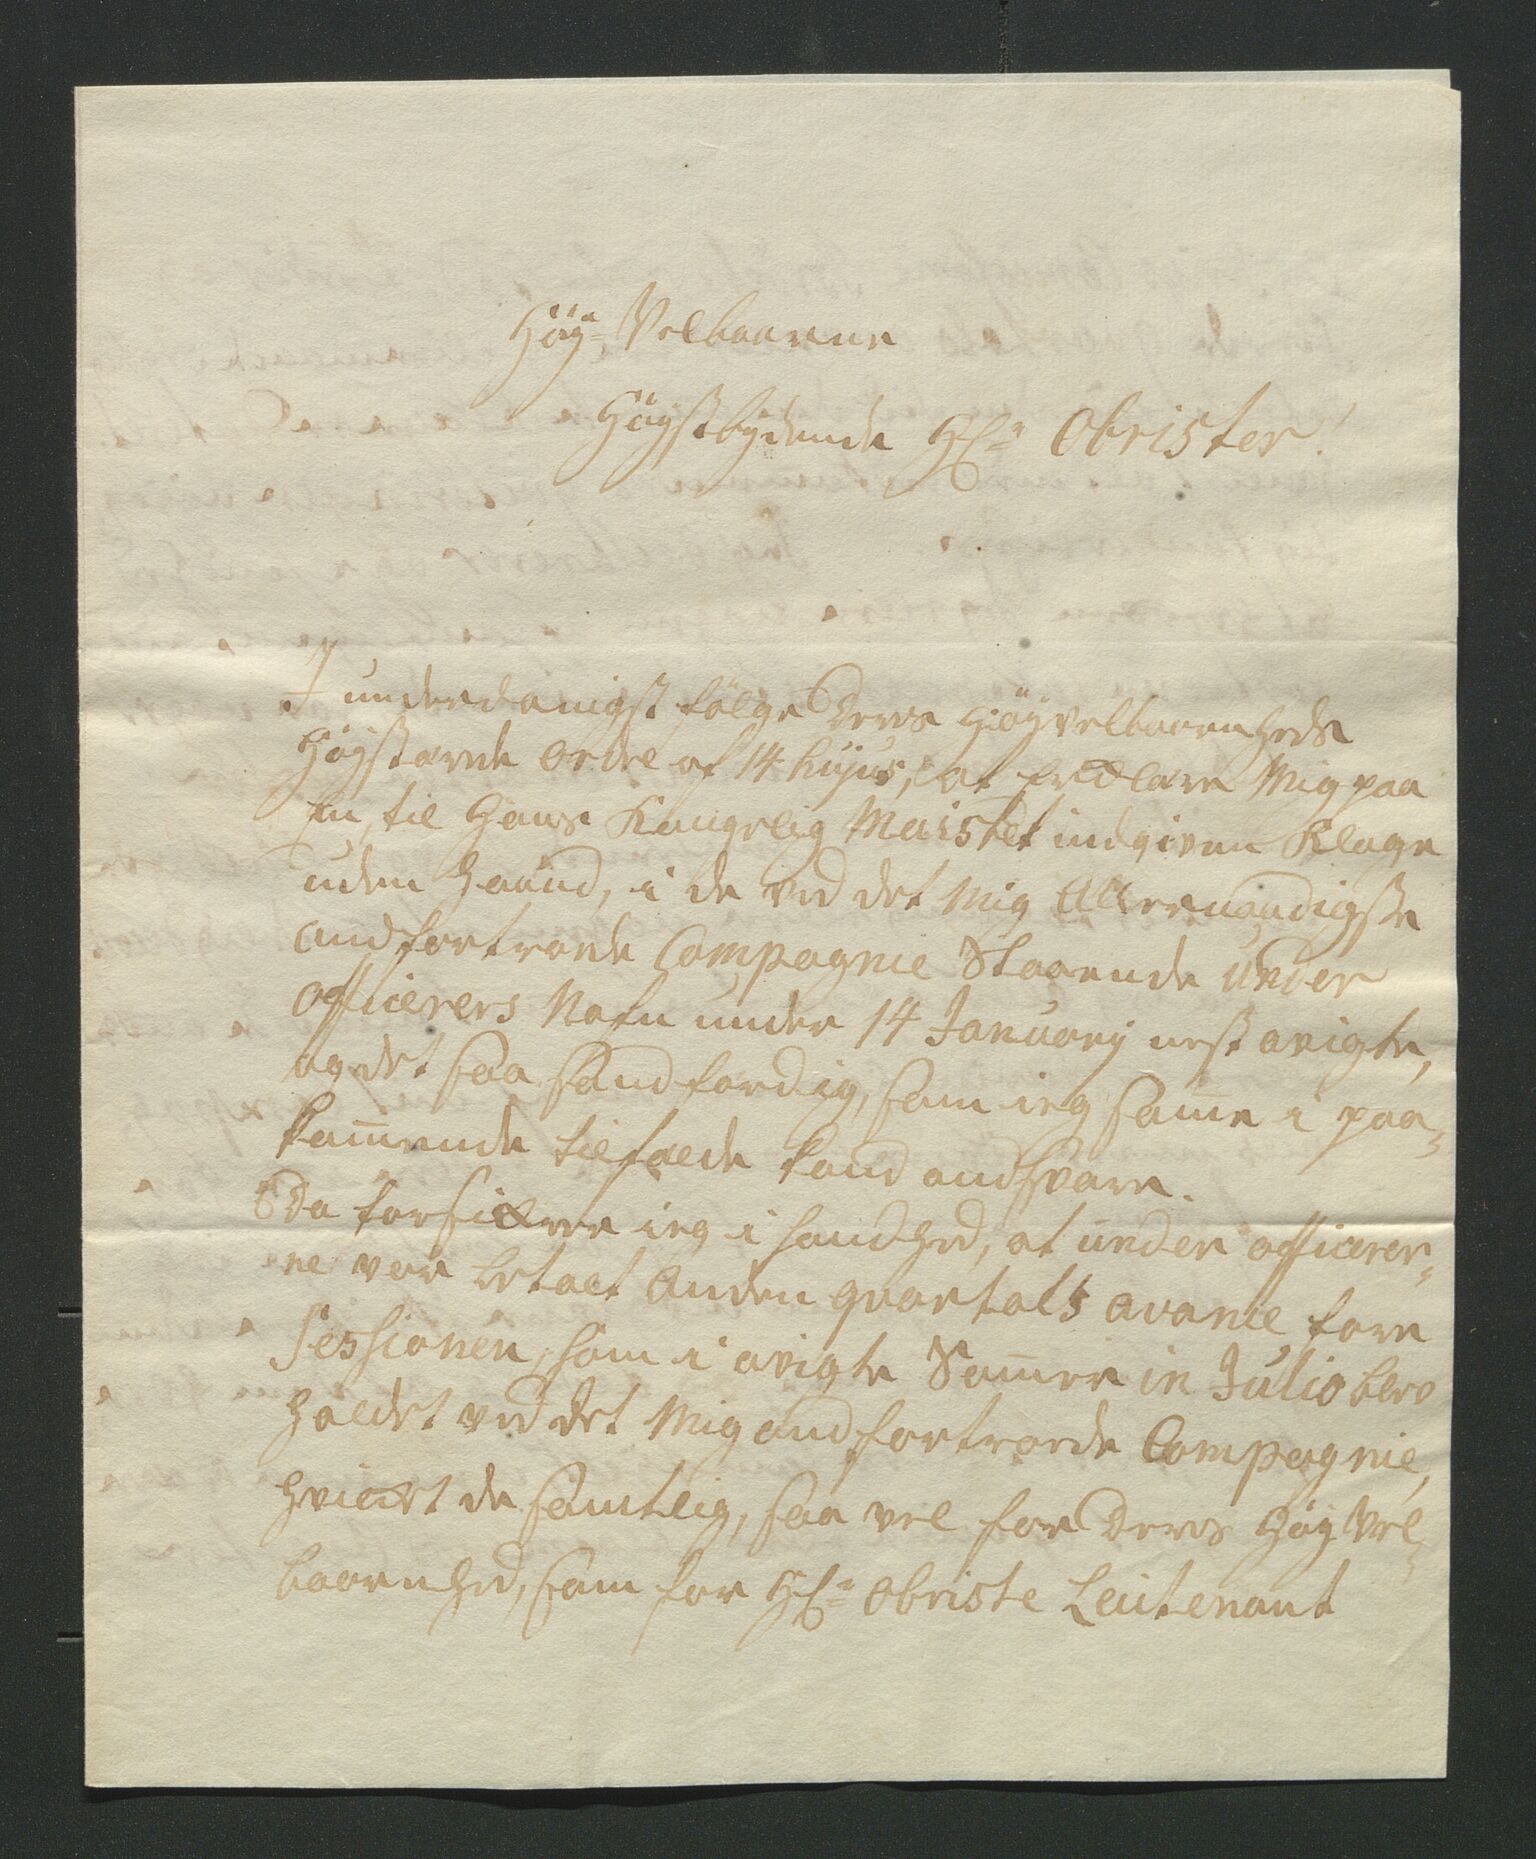 Høy- Velbaarne
Høystbydende Hr: Obrister!
I underdanigst følge Deres Høyvelbaarenheds
Høystærede Ordre af 14 hujus, at erklære Mig paa
en, til Hans Kongelig Maistet indgiven Klage
uden Haand, i de ved det Mig Allernaadigste
andfortroede Compagnie Staaende Under
officerers Nafn under 14 January nest avigte,
og det saa sandfærdig, som ieg samme i paa-
kommende tilfælde kand andsvare.
Da forsikrer ieg i sandhed, at under officerer-
ne var betalt Anden qvartals avance, førn
Sessionen, som i avigte Sommer in Julio blev
holdet ved det Mig andfortroede Compagnie,
hvilket de samtlig, saa vel for Deres Høy Vel-
baarnhed, som for Hr: Obriste Leutenant